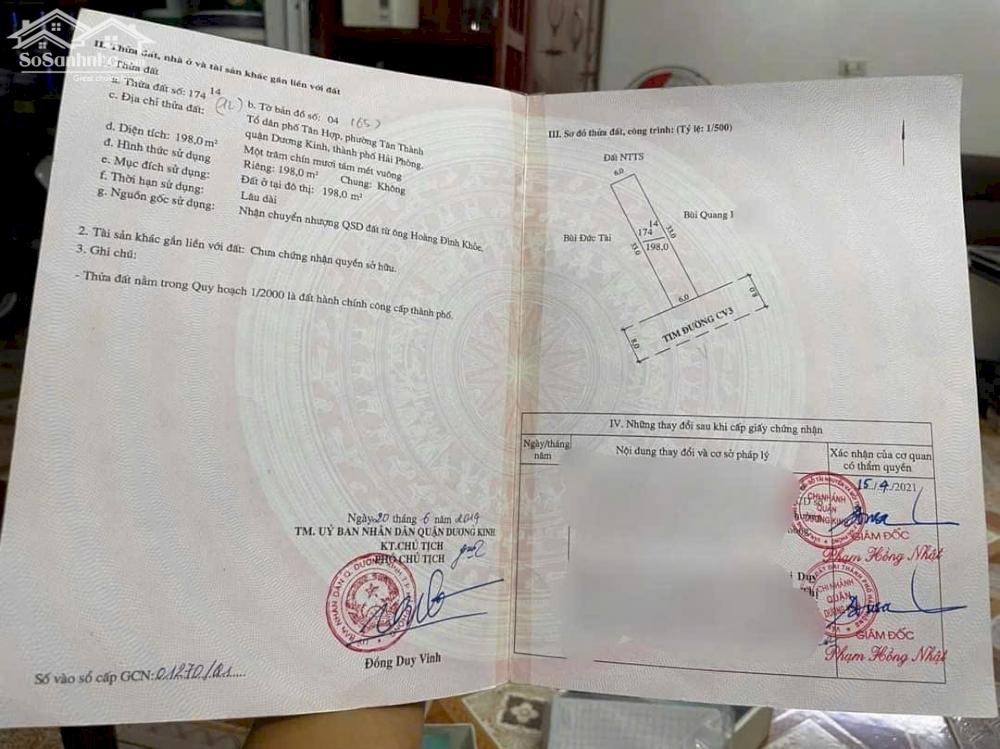 SoSanhnha.com
II. Thửa đất, nhà ở và tài sản khác gắn liền với đất
Thửa đất
a. Thửa đất số: 174 14 b. Tờ bản đồ số: 04 (65)
c. Địa chỉ thửa đất: Tổ dân phố Tân Hợp, phường Tân Thành
quận Dương Kinh, thành phố Hải Phòng.
d. Diện tích: 198,0 m² Một trăm chín mươi tám mét vuông
đ. Hình thức sử dụng Riêng: 198,0 m² Chung: Không
e. Mục đích sử dụng: Đất ở tại đô thị: 198,0 m²
f. Thời hạn sử dụng: Lâu dài
g. Nguồn gốc sử dụng: Nhận chuyển nhượng QSD đất từ ông Hoàng Đình Khỏe.
2. Tài sản khác gắn liền với đất: Chưa chứng nhận quyền sở hữu.
3. Ghi chú:
- Thửa đất nằm trong Quy hoạch 1/2000 là đất hành chính công cấp thành phố.
Ngày 20 tháng 6 năm 2019
TM. UỶ BAN NHÂN DÂN QUẬN DƯƠNG KINH
KT.CHỦ TỊCH
PHÓ CHỦ TỊCH
Đồng Duy Vinh
Số vào sổ cấp GCN: 01270/01
III. Sơ đồ thửa đất, công trình: (Tỷ lệ: 1/500)
Đất NTTS
6,0
Bùi Quang
14
174
198.0
33,0
33,0
Bùi Đức Tài
6,0
8,0
8,0
TIM ĐƯỜNG CV3
IV. Những thay đổi sau khi cấp giấy chứng nhận
Ngày/tháng năm
Nội dung thay đổi và cơ sở pháp lý
Xác nhận của cơ quan có thẩm quyền
15/4/2021
CHI NHÁNH
QUẬN
DƯƠNG KINH
GIÁM ĐỐC
Phạm Hồng Nhật
Duy
CHI NHÁNH
QUẬN
GIÁM ĐỐC
Phạm Hồng Nhật